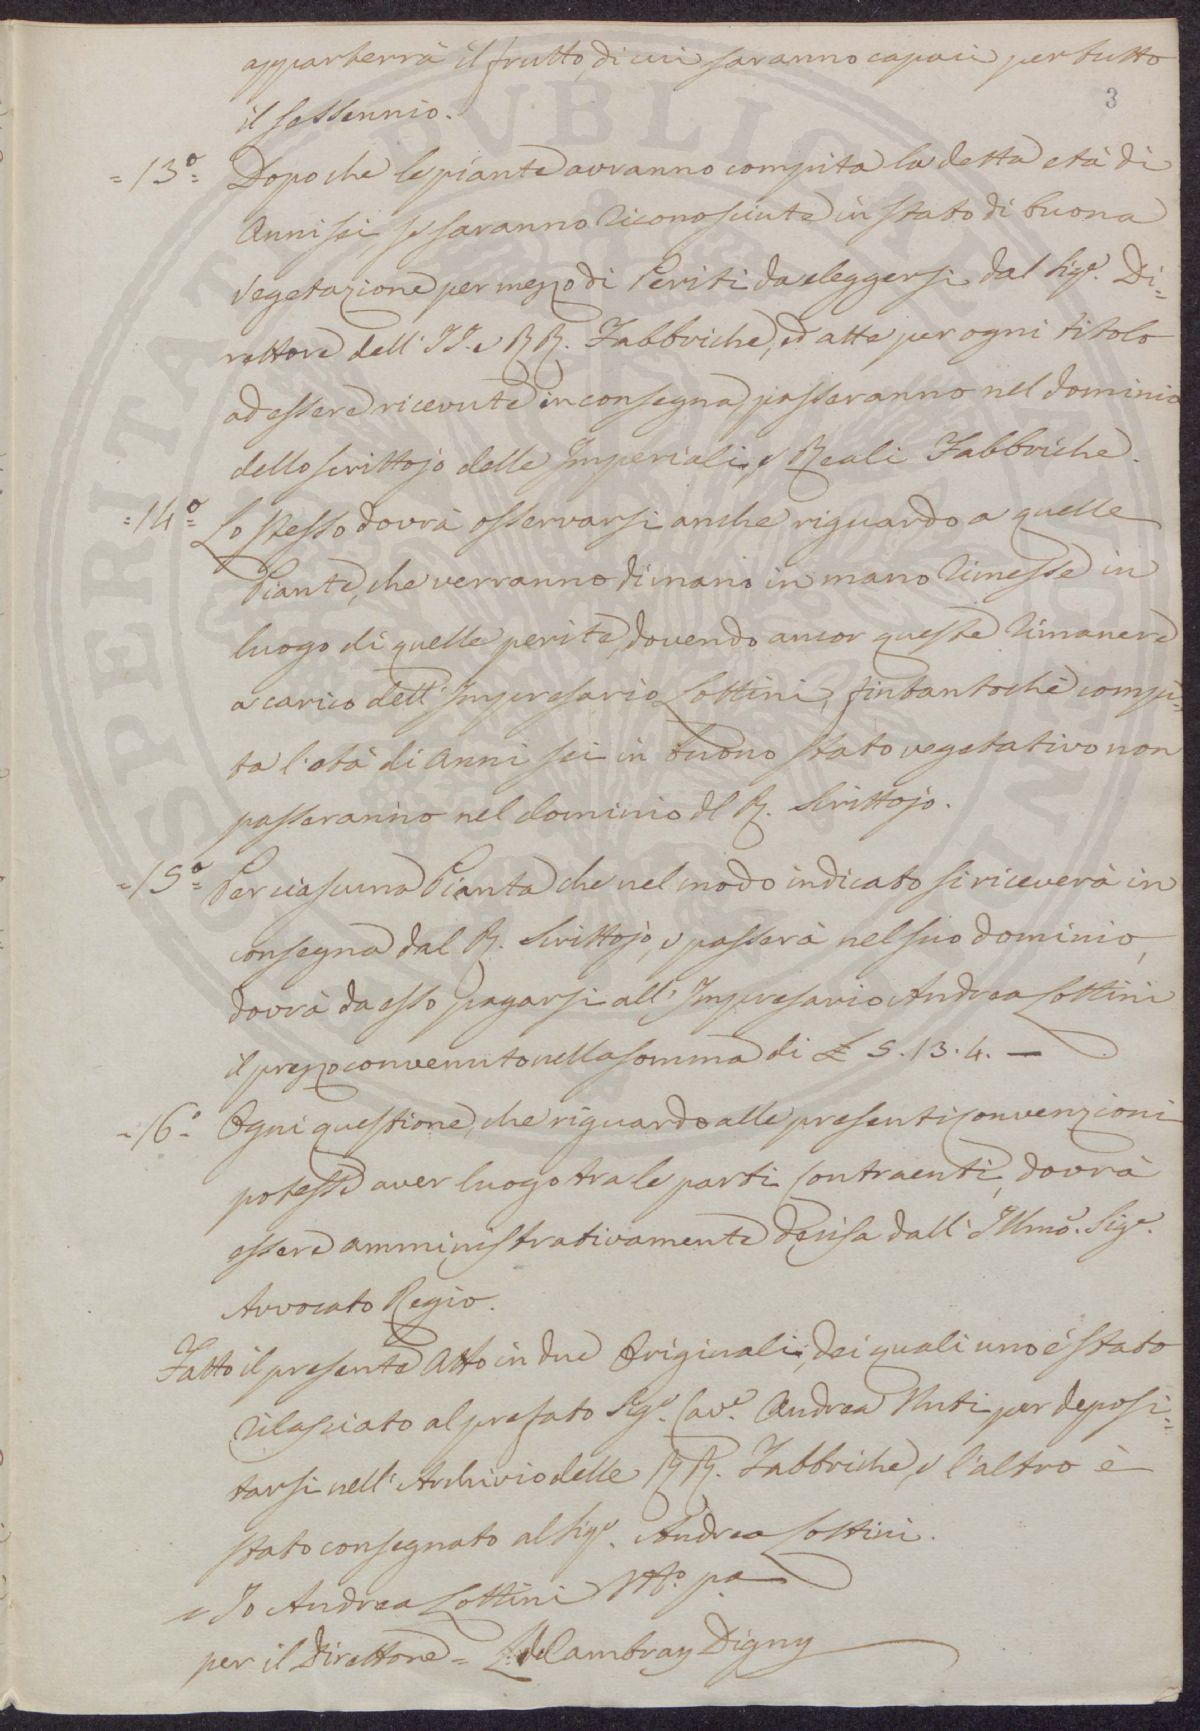 apparterrà il frutto, di cui saranno capaci per tutto
3
il sessennio.
=13°= Dopo che le piante avranno compita la detta età di
Anni sei, se saranno riconosciute in stato di buona
Vegetazione per mezzo di Periti da eleggersi dal Sigr. Di=
rettore dell' II. e RR. Fabbriche, ed atte per ogni titolo
ad essere ricevute in consegna, passeranno nel dominio
dello scrittojo delle Imperiali, e Reali Fabbriche.
=14°= Lo stesso dovrà osservarsi anche riguardo a quelle
Piante, che verranno di mano in mano rimesse in
luogo di quelle perite, dovendo ancor queste rimanere
a carico dell' Impresario Lottini, fintantochè compi=
ta l'età di Anni sei in buono stato vegetativo non
passeranno nel dominio del R. Scrittojo.
=15°= Per ciascuna Pianta che nel modo indicato si riceverà in
consegna dal R. Scrittojo, e passerà nel suo dominio,
dovrà da esso pagarsi all' Impresario Andrea Lottini
il prezzo convenuto nella somma di £ 5.13.4.—
=16°= Ogni questione, che riguardo alle presenti convenzioni
potesse aver luogo tra le parti contraenti, dovrà
essere amministrativamente decisa dall' Illmo. Sigr.
Avvocato Regio.
Fatto il presente Atto in due Originali, dei quali uno è stato
rilasciato al prefato Sigr. Cave. Andrea Nuti per deposi=
tarsi nell' Archivio delle RR. Fabbriche, e l'altro è
stato consegnato al Sigr. Andrea Lottini.
= Io Andrea Lottini
per il Direttore = L. de Cambray Digny
SPERITATI PVBLICAE